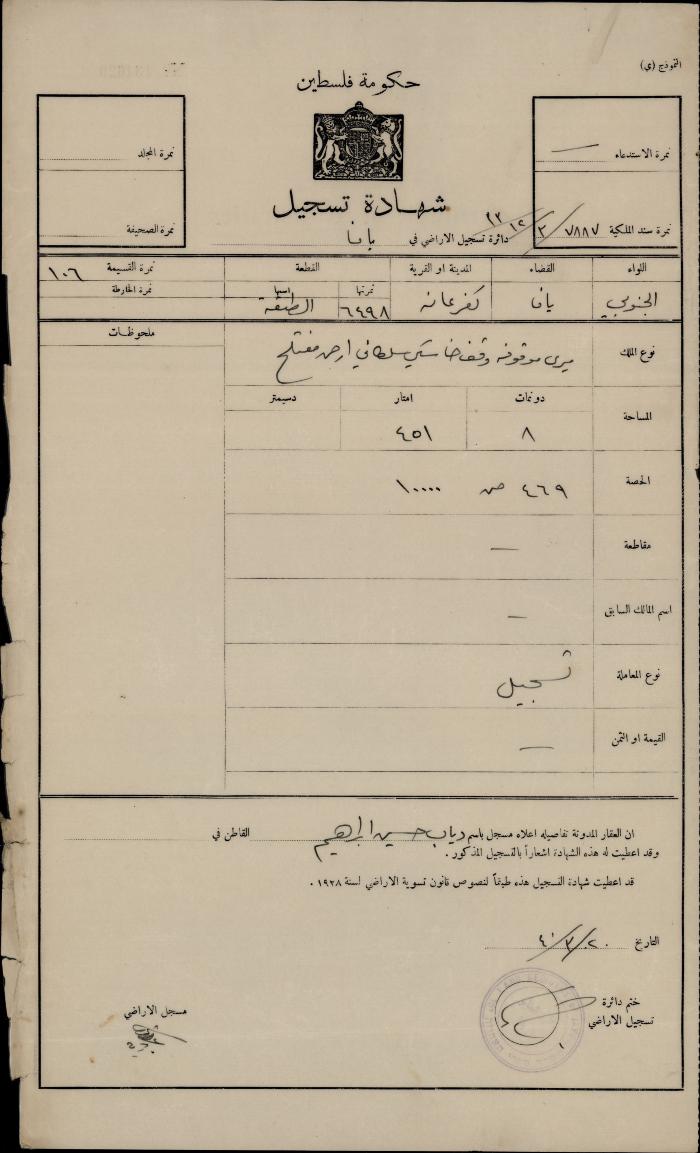 النموذج (ي)
حكومة فلسطين
نمرة الاستدعاء —
نمرة المجلد
شهادة تسجيل
نمرة سند الملكية ٧٨٨٧
نمرة الصحيفة
دائرة تسجيل الاراضي في يافا
اللواء القضاء المدينة او القرية القطعة نمرة القسيمة ١٠٦
نمرتها اسمها نمرة الخارطة
الجنوبي يافا كفرعانه ٦٤٩٨
ملحوظات
نوع الملك ميري موقوفه وقف خاسكي سلطاني ارض مفتلح
دونمات امتار دسيمتر
المساحة ٨ ٤٥١
الحصة ٤٦٩ من ١٠٠٠٠
مقاطعة —
اسم المالك السابق —
نوع المعاملة تسجيل
القيمة او الثمن —
ان العقار المدونة تفاصيله اعلاه مسجل باسم دياب حسين ابراهيم القاطن في
وقد اعطيت له هذه الشهادة اشعاراً بالتسجيل المذكور .
قد اعطيت شهادة التسجيل هذه طبقاً لنصوص قانون تسوية الاراضي لسنة ١٩٢٨ .
التاريخ ٢٠/٣/٤٠
ختم دائرة
تسجيل الاراضي
مسجل الاراضي